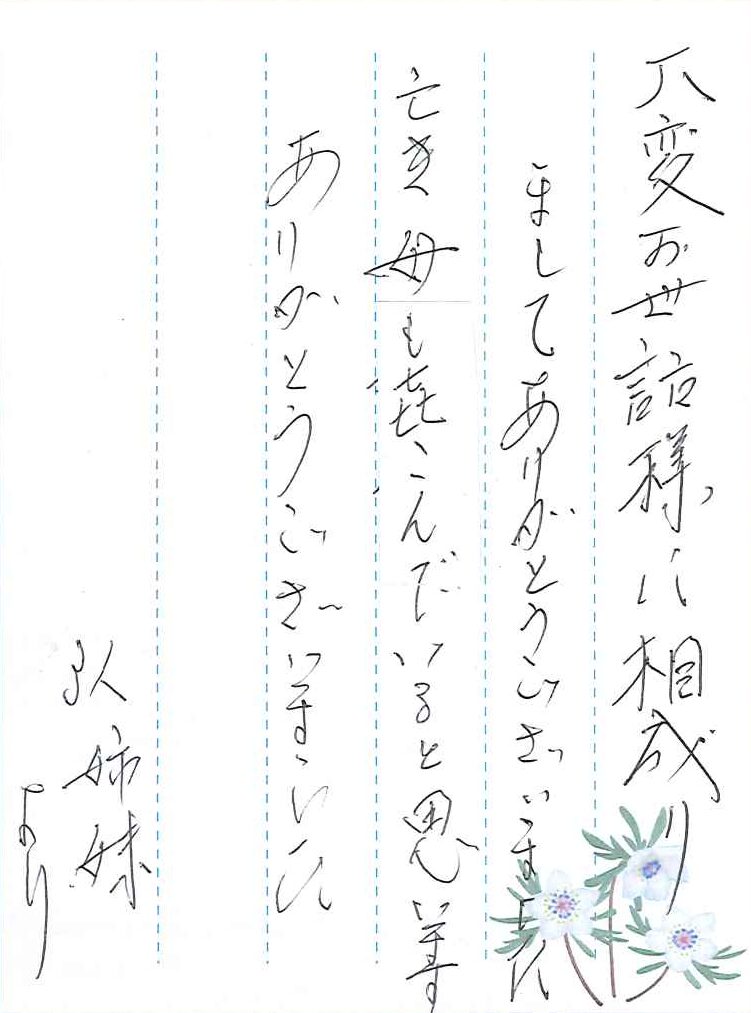 大変お世話様に相成り
ましてありがとうございました
亡き母も喜こんでいると思います
ありがとうございました
姉妹
より